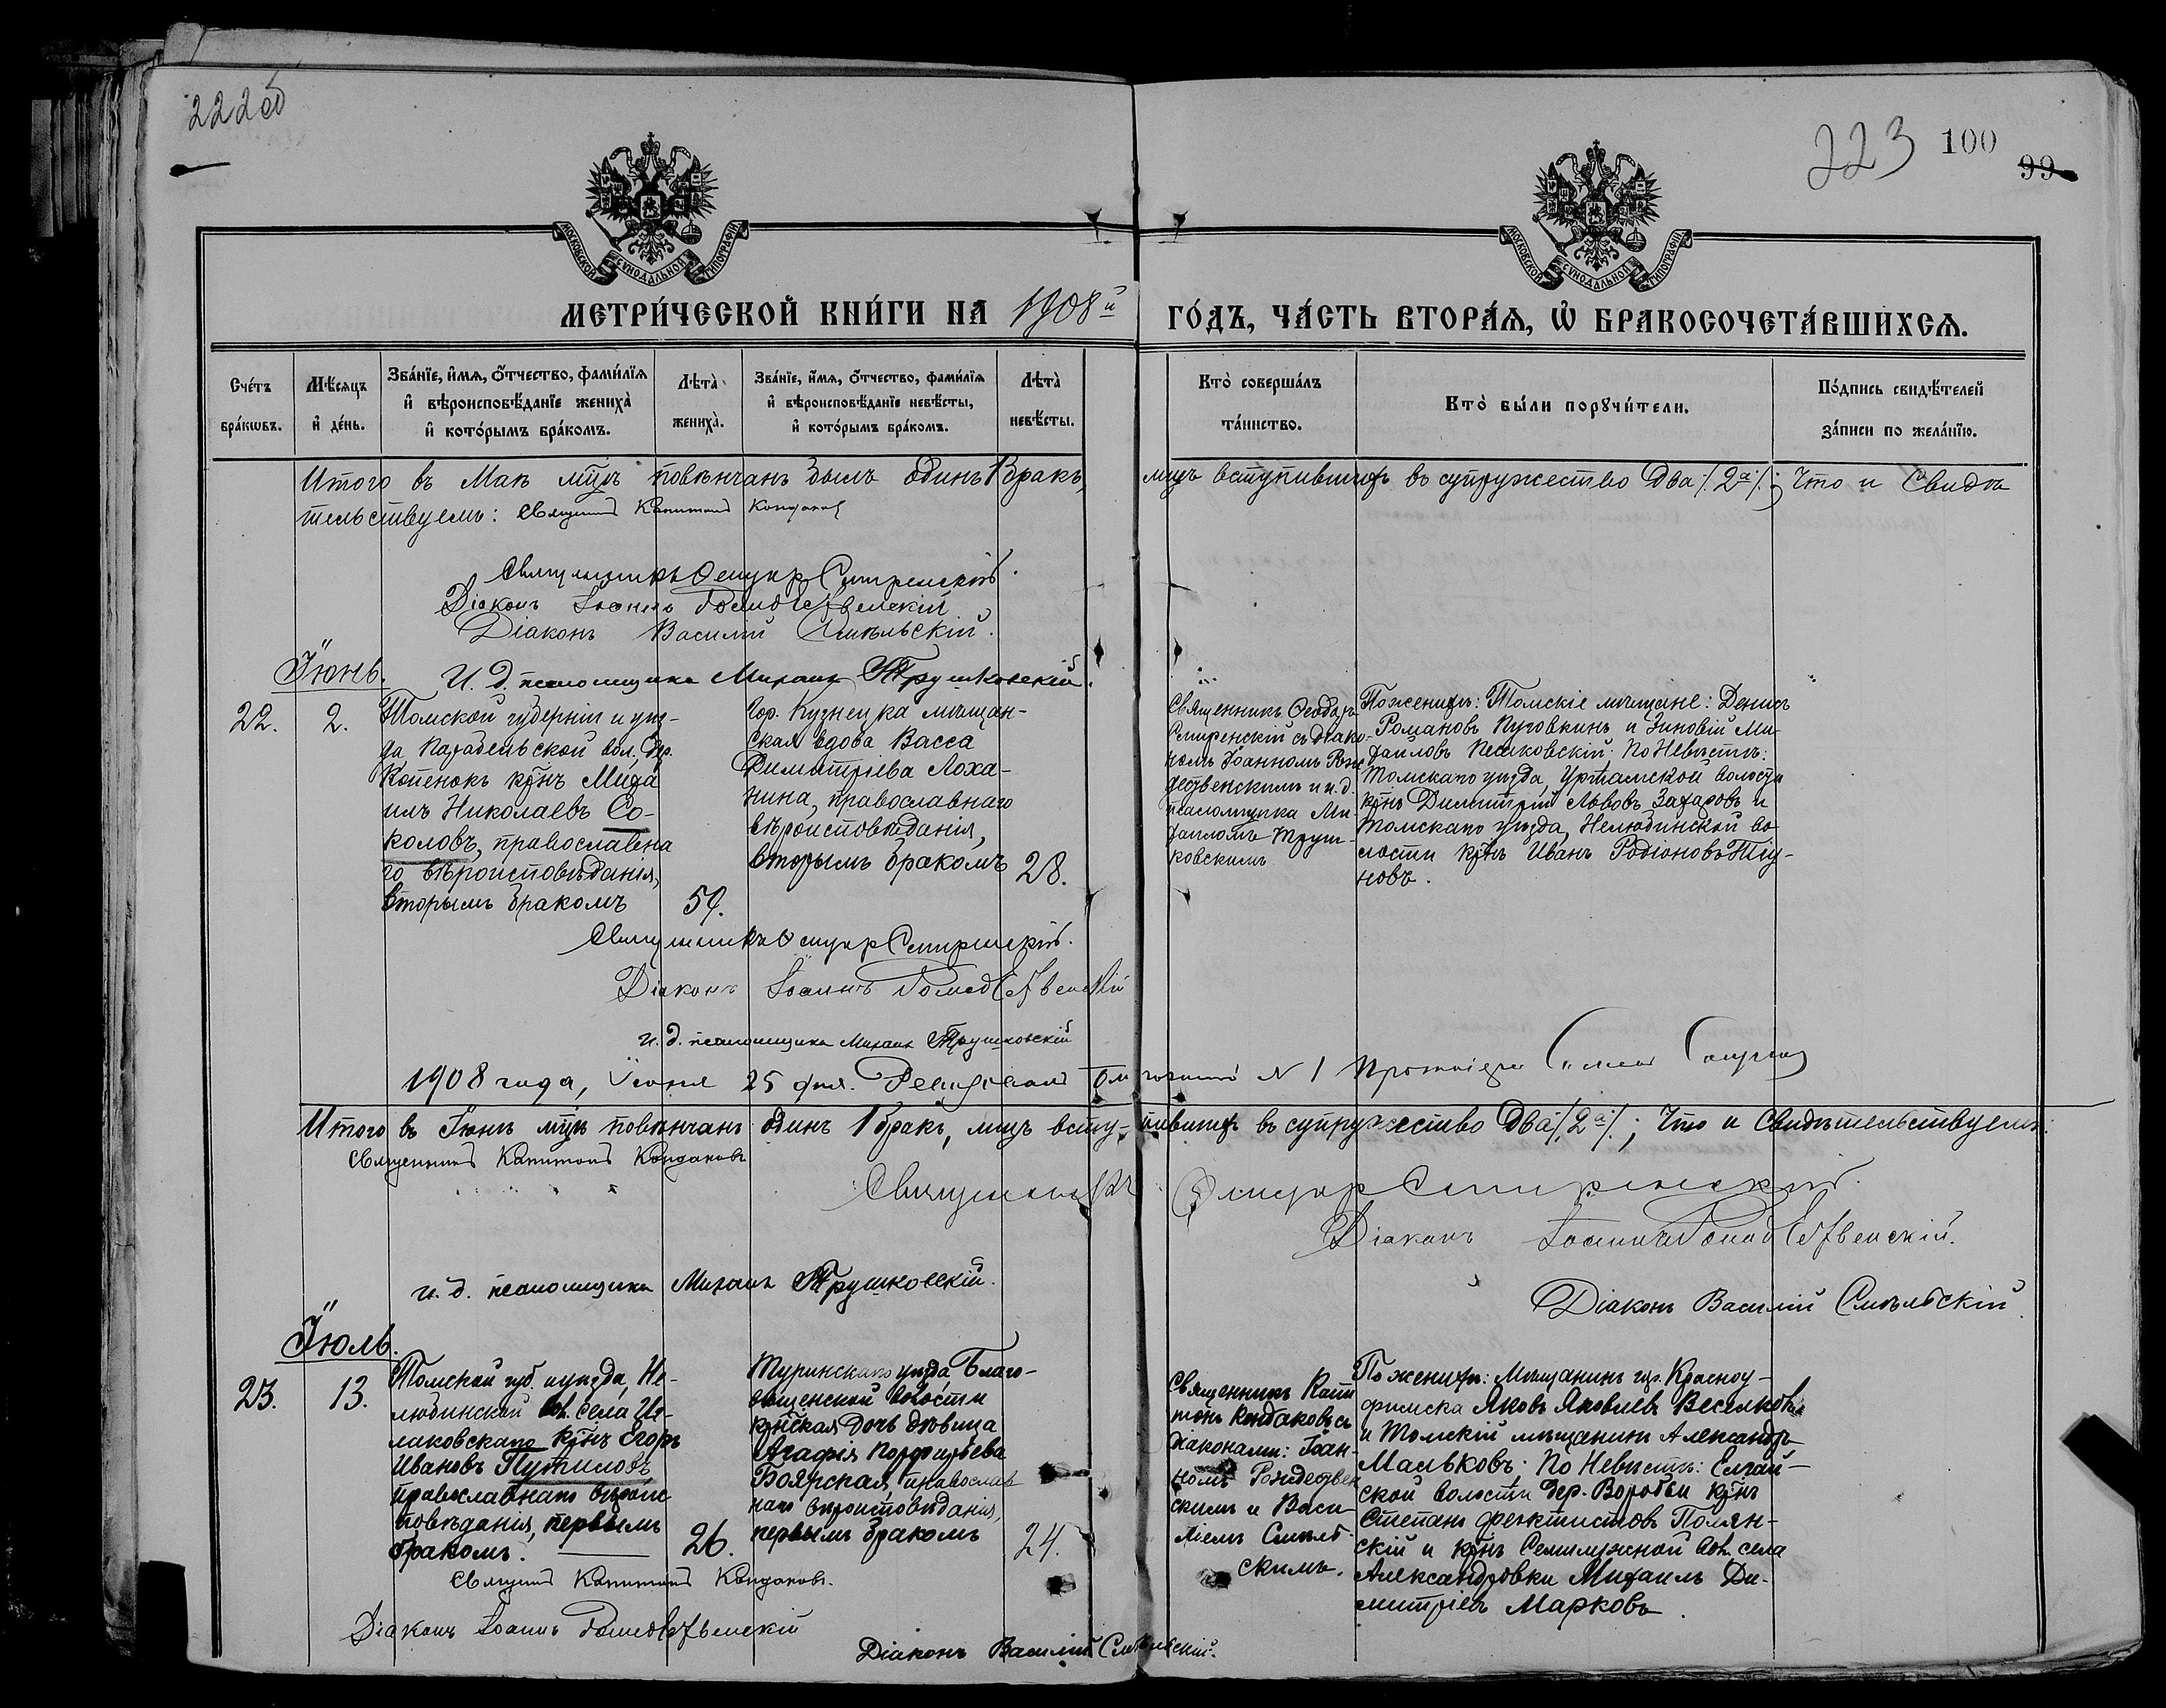 222об
223 100
99
МОСКОВСКОЙ СѴНОДАЛЬНОЙ ТИПОГРАФІИ
МОСКОВСКОЙ СѴНОДАЛЬНОЙ ТИПОГРАФІИ
МЕТРИ́ЧЕСКОЙ КНИ́ГИ НА 1908й ГО́ДЪ, ЧА́СТЬ ВТОРА́Я, Ѡ БРАКОСОЧЕТА́ВШИХСЯ.
Сче́тъ бра́кѡвъ.
Мѣ́сяцъ и де́нь.
Зва́нїе, и́мя, ѻ́тчество, фами́лїя
и вѣроисповѣ́данїе жениха̀
и кото́рымъ бра́комъ.
Лѣта̀ жениха̀.
Зва́нїе, и́мя, ѻ́тчество, фами́лїя
и вѣроисповѣ́данїе невѣ́сты,
и кото́рымъ бра́комъ.
Лѣта̀ невѣ́сты.
Кто̀ соверша́лъ
та́инство.
Кто̀ бы́ли порꙋчи́тели.
По́дпись свидѣ́телей
за́писи по жела́нїю.
Итого въ Маѣ мцѣ повѣнчанъ былъ одинъ 1 бракъ, лицъ вступившихъ въ супружество два /2а/; Что и Свидѣ
тельствуемъ: Священникъ Капитонъ Кондаковъ
Священникъ Ѳеодоръ Смиренскій.
Діаконъ Іоаннъ Рождественскій
Діаконъ Василій Смѣльскій.
И. д. псаломщика Михаилъ Трушковскій.
Іюнь.
22.
2.
Томской губерніи и уѣз-
да Парабельской вол., дер.
Копенокъ крнъ Миха
илъ Николаевъ Со-
коловъ, православна
го вѣроисповѣданія,
вторымъ бракомъ
59.
Гор. Кузнецка мѣщан-
ская вдова Васса
Димитріева Лоха-
нина, православнаго
вѣроисповѣданія,
вторымъ бракомъ
28.
Священникъ Ѳеодоръ
Смиренскій съ діако-
номъ Іоанномъ Рож-
дественскимъ и и.д.
псаломщика Ми-
хаиломъ Труш-
ковскимъ
По женихѣ: Томскіе мѣщане: Денисъ
Романовъ Пуговкинъ и Зиновій Ми-
хайловъ Пешковскій. По Невѣстѣ:
Томскаго уѣзда, Уртамской волости
крнъ Димитрій Львовъ Захаровъ и
Томскаго уѣзда, Нелюдинской во
лости крнъ Иванъ Родіоновъ Тіу-
новъ.
Священникъ Ѳеодоръ Смиренскій.
Діаконъ Іоаннъ Рождественскій
и. д. псаломщика Михаилъ Трушковскій
1908 года, Іюня 25 дня. Ревизовалъ Благочинный N 1 Протоіерей
Итого въ Іюнѣ мцѣ повѣнчанъ одинъ 1 бракъ, лицъ всту-пившихъ въ супружество два /2а/; Что и Свидѣтельствуемъ:
Священникъ Капитонъ Кондаковъ
Священникъ Ѳеодоръ Смиренскій.
Діаконъ Іоаннъ Рождественскій.
и. д. псаломщика Михаилъ Трушковскій.
Діаконъ Василій Смѣльскій.
Іюль.
23.
13.
Томской губ. и уѣзда, Не-
любинской вол. села Иг-
лаковскаго крнъ Егоръ
Ивановъ Путиловъ
православнаго вѣроис
повѣданія, первымъ
бракомъ.
26.
Туринскаго уѣзда, Благо-
вѣщенской волости
крнская дочь дѣвица
Агафія Порфирьева
Боярская, православ
наго вѣроисповѣданія,
первымъ бракомъ
24.
Священникъ Капи
тонъ Кондаковъ съ
діаконами: Іоан-
номъ Рождествен
скимъ и Васи-
ліемъ Смѣль-
скимъ.
По женихѣ: Мѣщанинъ гор. Красноу-
фимска Яковъ Яковлевъ Веселковъ
и Томскій мѣщанинъ Александръ
Мальковъ. По Невѣстѣ: Елгай-
ской волости дер. Воробьи крнъ
Степанъ Феоктистовъ Полян-
скій и крнъ Семилужной вол. села
Александровки Михаилъ Ди-
митріевъ Марковъ.
Священникъ Капитонъ Кондаковъ.
Діаконъ Іоаннъ Рождественскій
Діаконъ Василій Смѣльскій.